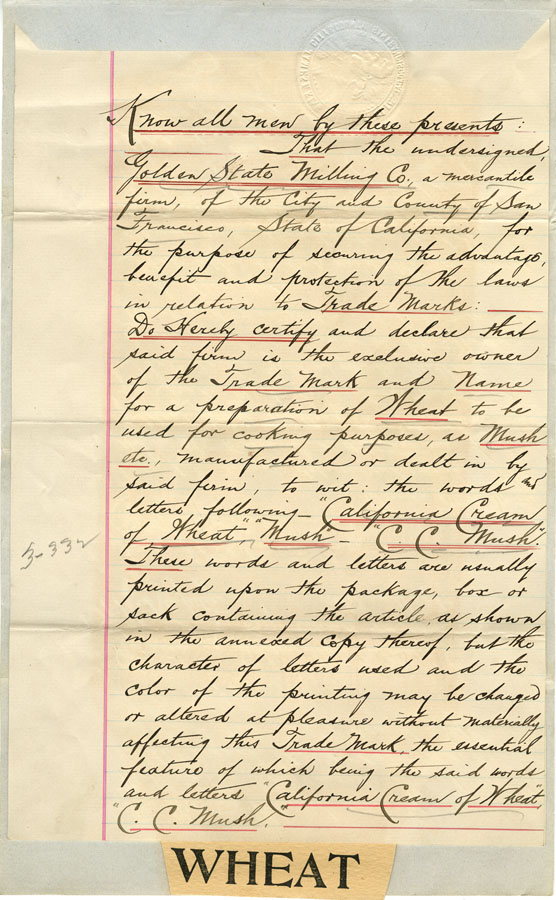 Know all men by these presents:
That the undersigned,
Golden State Milling Co., a mercantile
firm, of the City and County of San
Francisco, State of California, for
the purpose of securing the advantage,
benefit and protection of the laws
in relation to Trade Marks:
Do Hereby certify and declare that
said firm is the exclusive owner
of the Trade Mark and Name
for a preparation of Wheat to be
used for cooking purposes, as Mush
etc., manufactured or dealt in by
said firm, to wit: the words and
letters following - "California Cream
of Wheat" "Mush - "C. C. Mush".
These words and letters are usually
printed upon the package, box or
sack containing the article, as shown
in the annexed copy thereof, but the
character of letters used and the
color of the printing may be changed
or altered at pleasure without materially
affecting this Trade Mark, the essential
feature of which being the said words
and letters "California Cream of Wheat,"
"C. C. Mush."
WHEAT